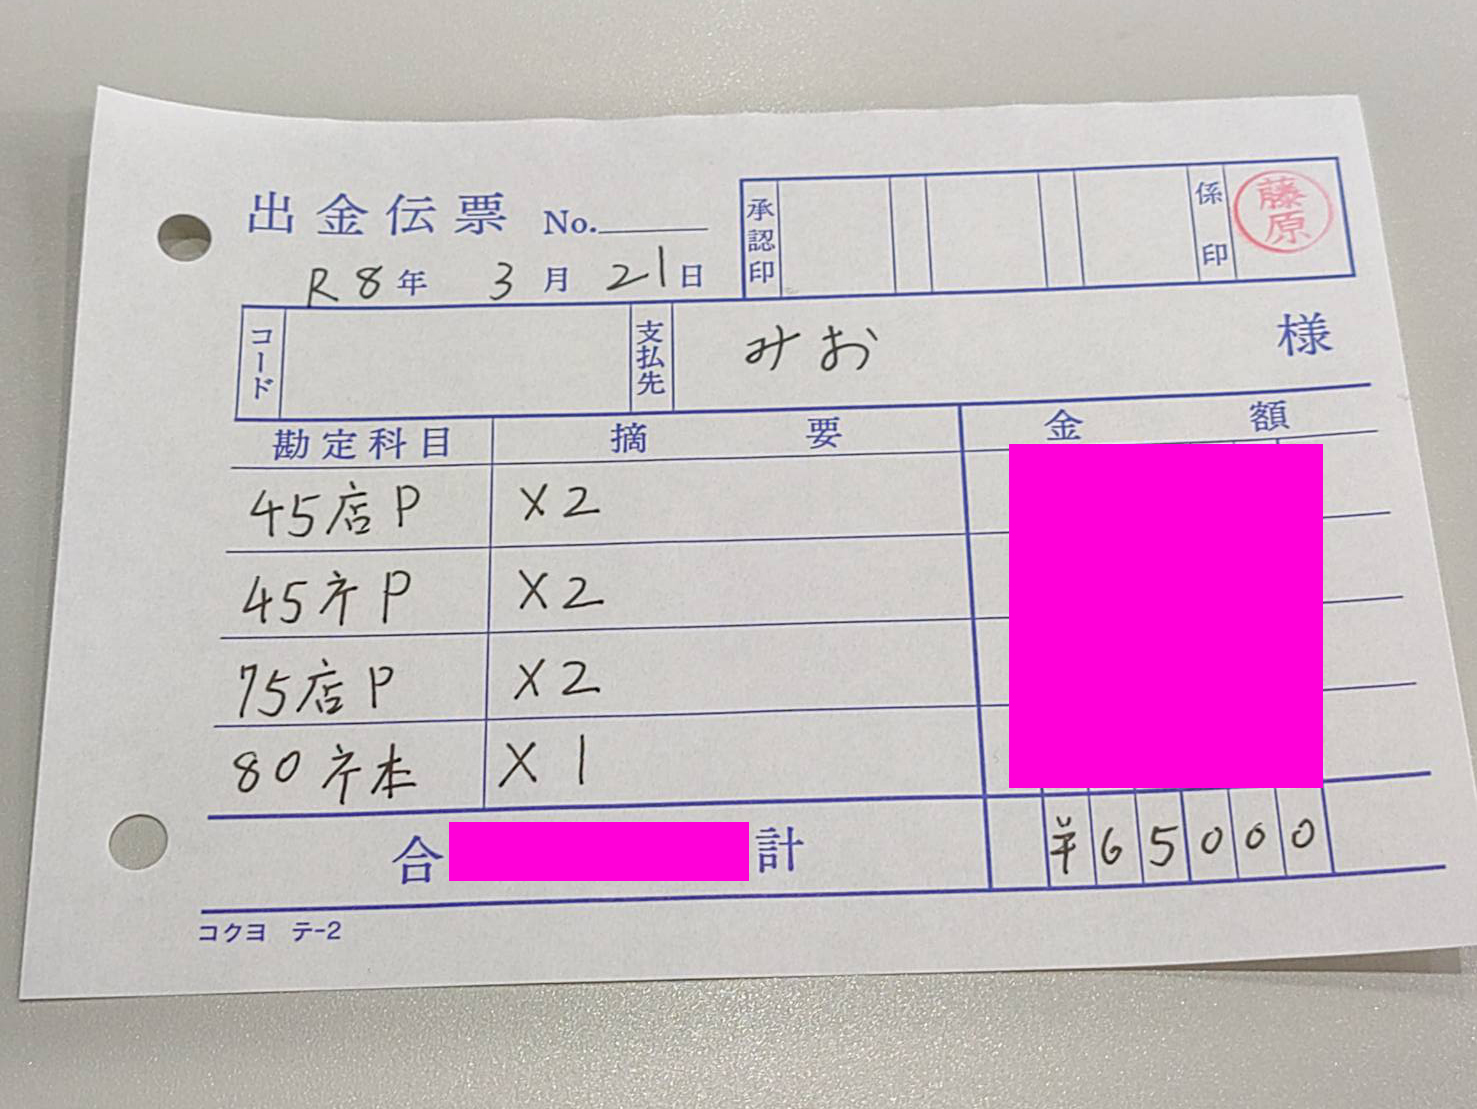 出金伝票 No.
承認印 係印 藤原
R8年 3月 21日
コード 支払先 みお 様
勘定科目 摘要 金額
45店P ×2
45ネP ×2
75店P ×2
80ネ本 ×1
合計 ¥65000
コクヨ テ-2